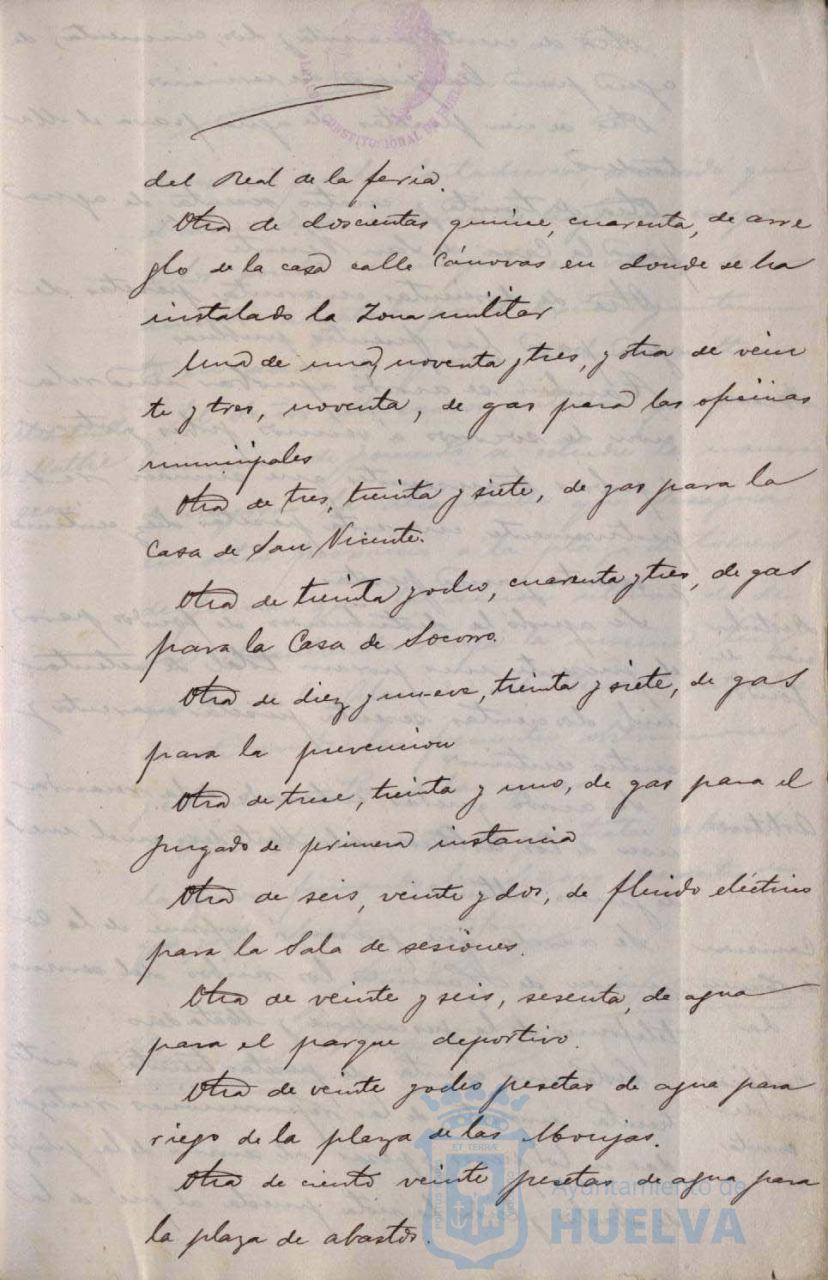 del Real de la feria.
Otra de doscientas quince, cuarenta, de arre
glo de la casa calle Cánovas en donde se ha
instalado la Zona militar
Una de una, noventa y tres, y otra de vein
te y tres, noventa, de gas para las oficinas
municipales
Otra de tres, treinta y siete, de gas para la
Casa de San Vicente.
Otra de treinta y ocho, cuarenta y tres, de gas
para la Casa de Socorro.
Otra de diez y nueve, treinta y siete, de gas
para la prevencion
Otra de trece, treinta y uno, de gas para el
Juzgado de primera instancia
Otra de seis, veinte y dos, de fluido eléctrico
para la Sala de sesiones.
Otra de veinte y seis, sesenta, de agua
para el parque deportivo.
Otra de veinte y ocho pesetas de agua para
riego de la plaza de las Monjas.
Otra de ciento veinte pesetas de agua para
la plaza de abastos.
Ayuntamiento de
HUELVA